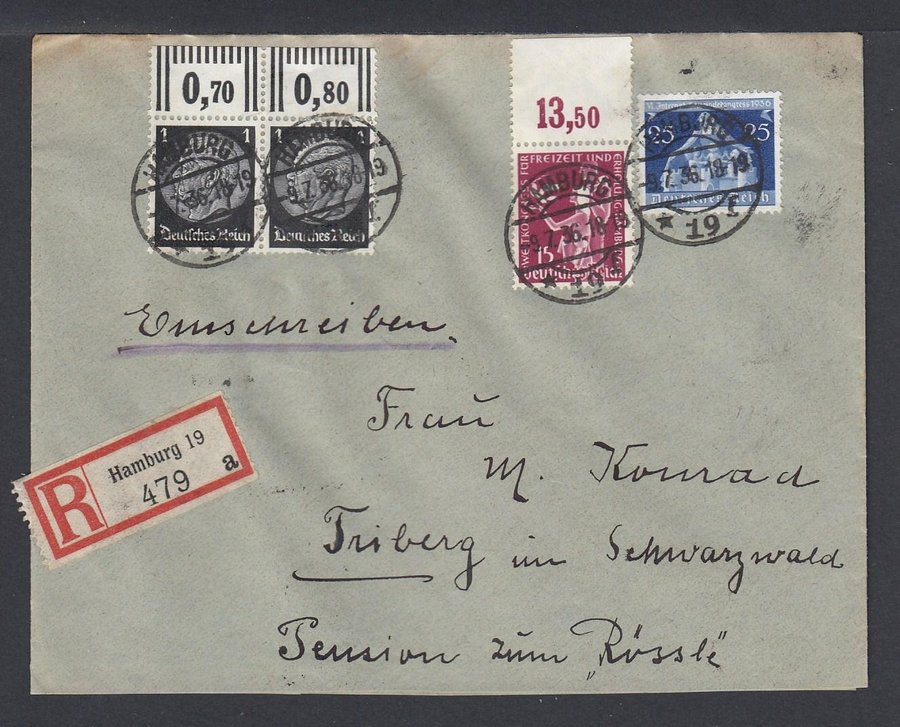 0,70 0,80
13,50
VI. Internat. Gemeindekongress 1936
1 1
25 25
Deutsches Reich Deutsches Reich
15
Deutsches Reich
Deutsches Reich
HAMBURG
-9.7.36.18-19
★ 19 f
HAMBURG
-9.7.36.18-19
HAMBURG
-9.7.36.18-19
★ 19 f
HAMBURG
-9.7.36.18-19
★ 19 f
Einschreiben.
R
Hamburg 19
479 a
Frau
M. Konrad
Triberg im Schwarzwald
Pension zum „Rössle“